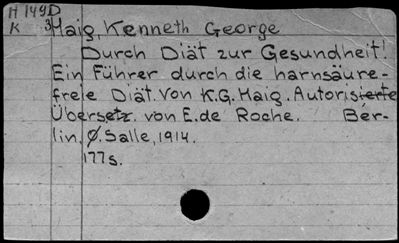 H 149D
K 3 Haig, Kenneth George
Durch Diät zur Gesundheit!
Ein Führer durch die harnsäure-
freie Diät. Von K.G. Haig. Autorisierte
Übersetz. von E. de Roche. Ber-
lin, O. Salle, 1914.
177s.